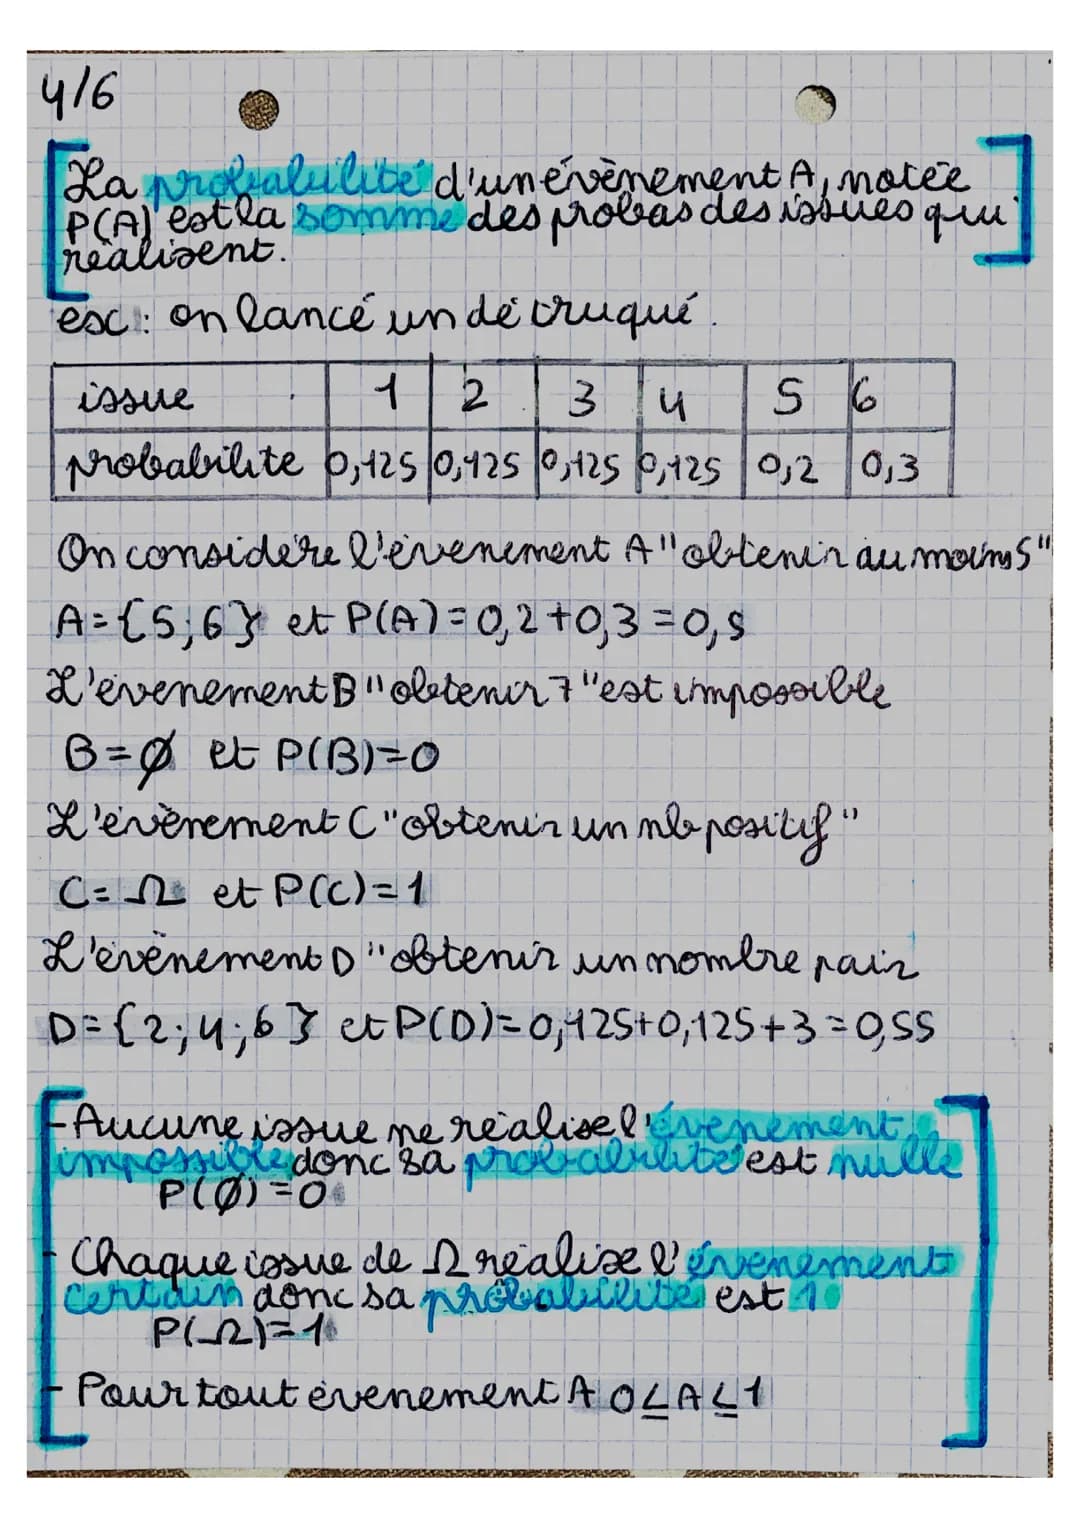 4/6
La probabilité d'un évènement A, notée
P(A) est la somme des probas des issues qui
réalisent.
ex : on lance un dé truqué.
issue 1 2 3 4 5 6
probabilite 0,125 0,125 0,125 0,125 0,2 0,3
On considère l'évenement A "obtenir au moins 5"
A={5;6} et P(A)=0,2+0,3=0,5
L'évenement B "obtenir 7" est impossible
B=Ø et P(B)=0
L'évènement C "obtenir un nb positif"
C=Ω et P(C)=1
L'évènement D "obtenir un nombre pair
D={2;4;6} et P(D)=0,125+0,125+3=0,55
-Aucune issue ne réalise l'évenement
impossible donc sa probabilité est nulle
P(Ø)=0
- Chaque issue de Ω réalise l'évenement
certain donc sa probabilité est 1
P(Ω)=1
- Pour tout évenement A 0≤A≤1